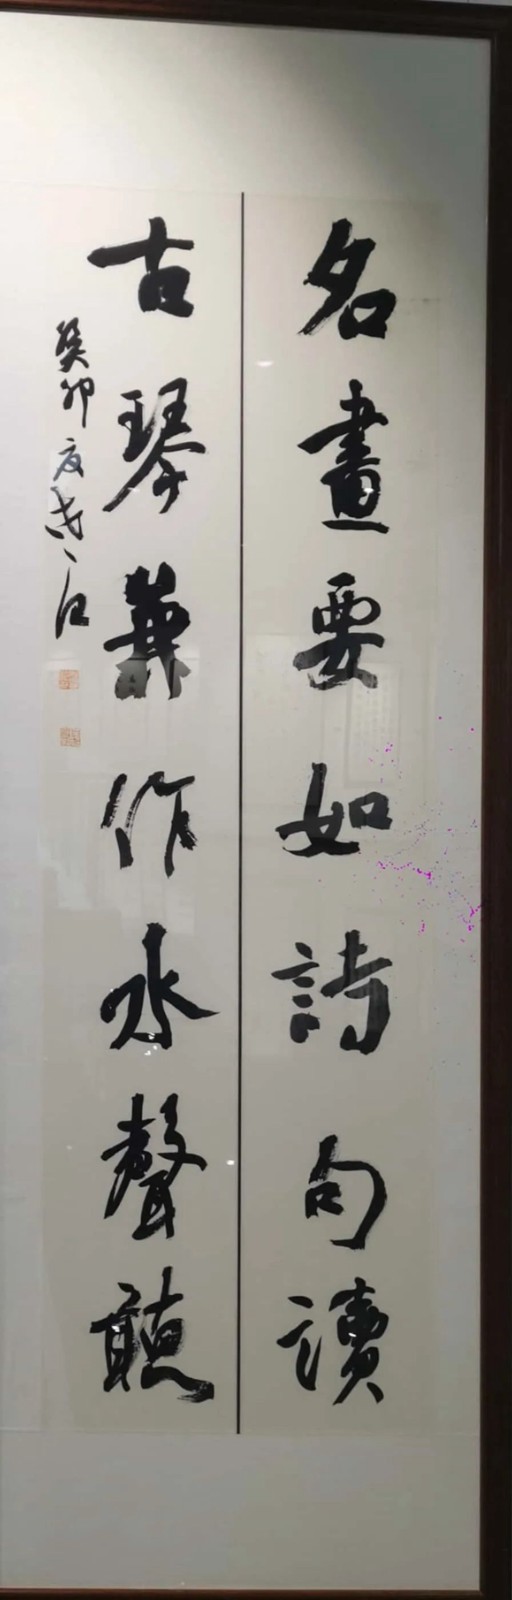 名畫要如詩句讀
古琴兼作水聲聽
癸卯夏